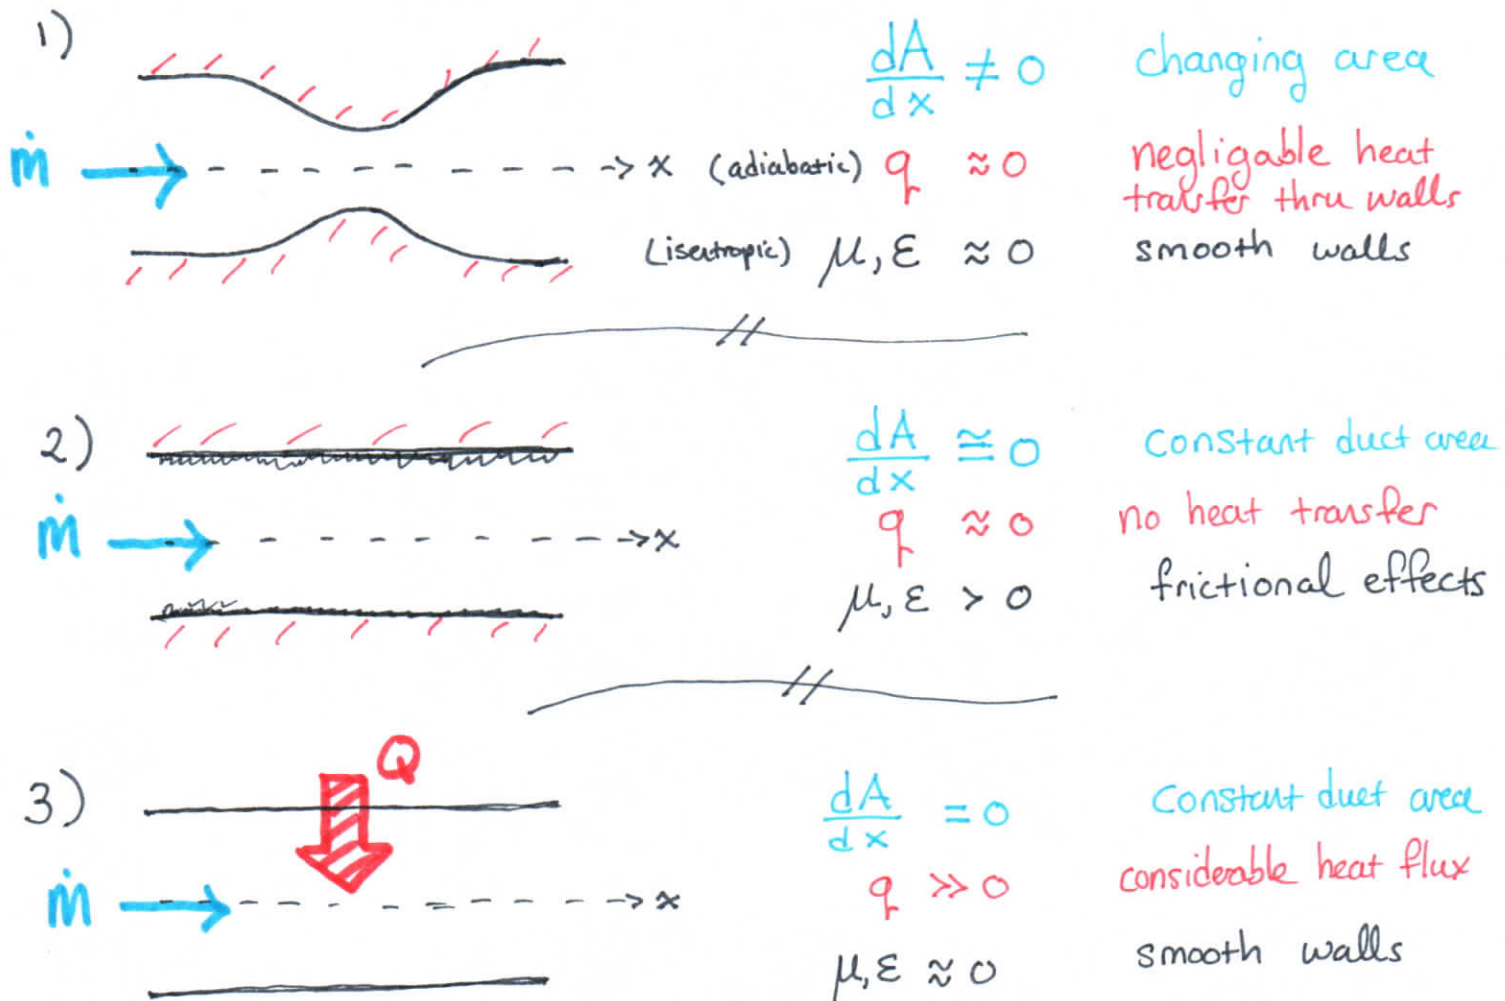 1)
dA/dx ≠ 0 changing area
ṁ → x (adiabatic) q ≈ 0 negligable heat
transfer thru walls
(isentropic) μ, ε ≈ 0 smooth walls
2)
dA/dx ≅ 0 constant duct area
ṁ → x q ≈ 0 no heat transfer
μ, ε > 0 frictional effects
3)
Q
dA/dx = 0 constant duct area
q >> 0 considerable heat flux
ṁ → x
μ, ε ≈ 0 smooth walls